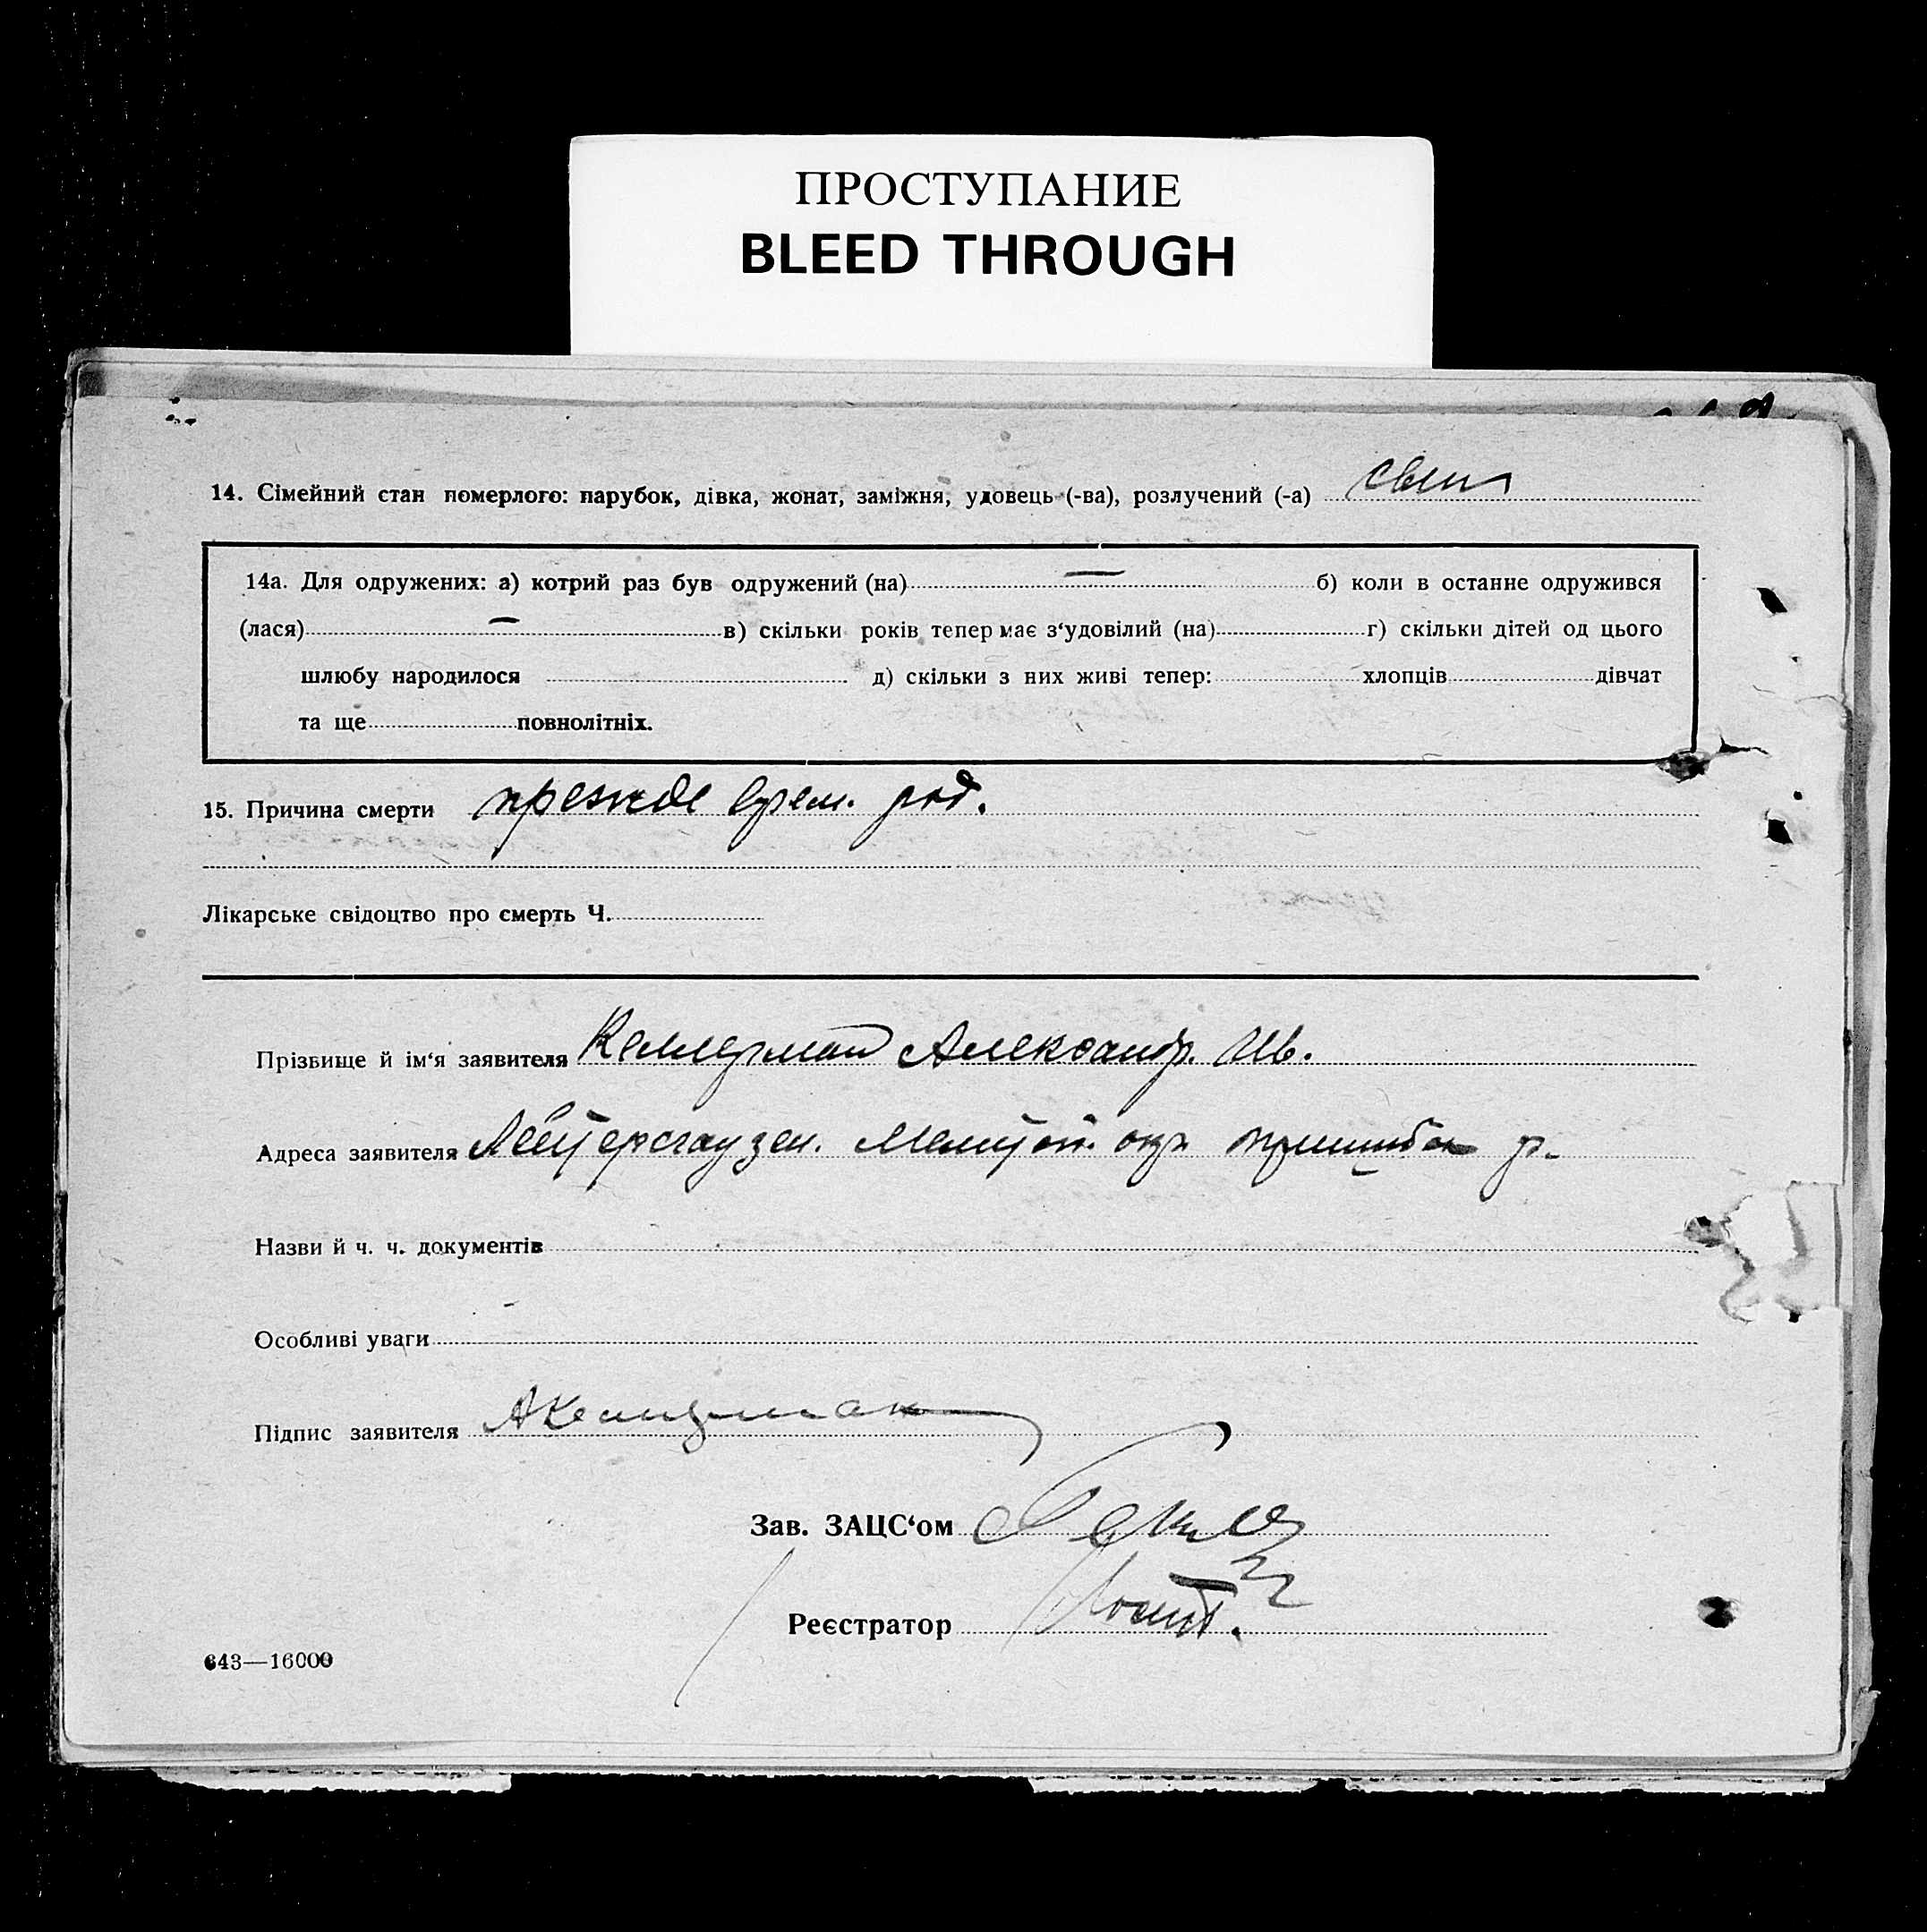 ПРОСТУПАНИЕ
BLEED THROUGH
14. Сімейний стан померлого: парубок, дівка, жонат, заміжня, удовець (-ва), розлучений (-а)
14а. Для одружених: а) котрий раз був одружений (на) — б) коли в останнє одружився
(лася) — в) скільки років тепер має з‘удовілий (на) г) скільки дітей од цього
шлюбу народилося д) скільки з них живі тепер: хлопців дівчат
та ще повнолітніх.
15. Причина смерти прежде врем. род.
Лікарське свідоцтво про смерть Ч.
Прізвище й ім‘я заявителя Келлерман Александр. Ив.
Адреса заявителя Лейтерсгаузен. Мелитоп. окр. пришибск р.
Назви й ч. ч. документів
Особливі уваги
Підпис заявителя АКеллерман
Зав. ЗАЦС‘ом
Реєстратор
643—16000